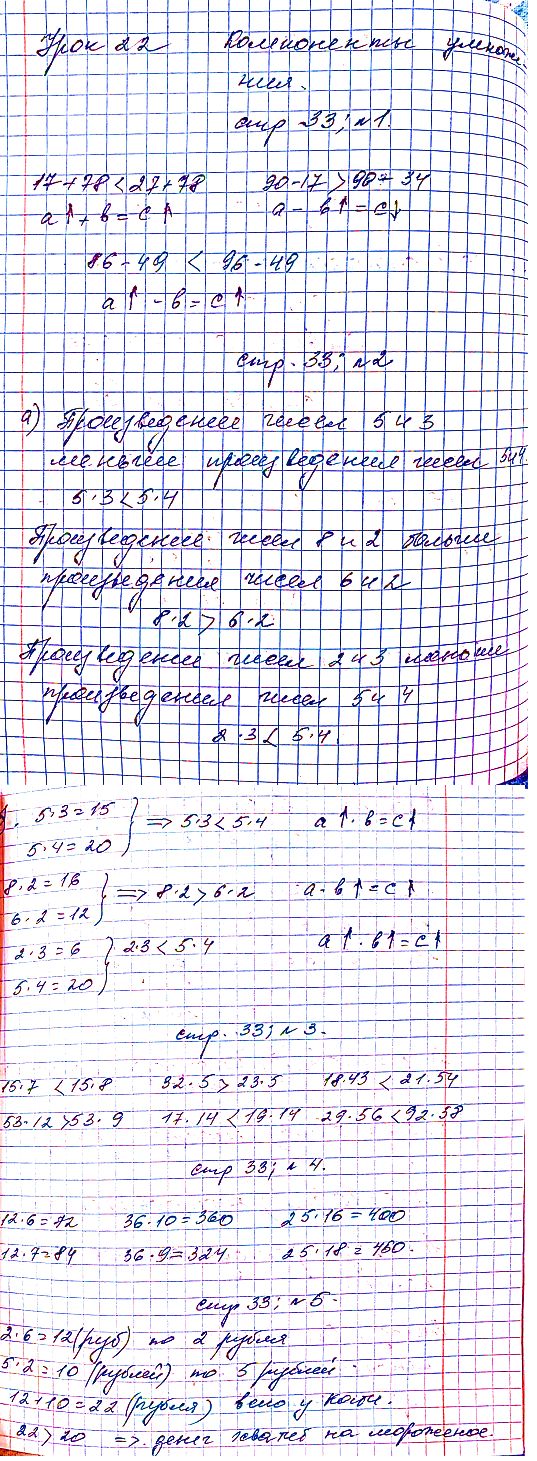 Урок 22 Компоненты умноже-
ния.
стр 33; н1.
17+78<27+78 90-17>90-34
а↑+в=с↑ а-в↑=с↓
86-49 < 96-49
а↑-в=с↑
стр. 33; н2
а) Произведение чисел 5 и 3
меньше произведения чисел 5и4
5·3<5·4
Произведение чисел 8 и 2 больше
произведения чисел 6 и 2
8·2>6·2
Произведение чисел 2 и 3 меньше
произведения чисел 5 и 4
2·3<5·4.
5·3=15
5·4=20 } => 5·3<5·4 а↑·в=с↑
8·2=16
6·2=12 } => 8·2>6·2 а·в↑=с↑
2·3=6
5·4=20 } 2·3<5·4 а↑·в↑=с↑
стр. 33; н3.
15·7<15·8 32·5>23·5 18·43<21·54
53·12>53·9 17·14<19·14 29·56<92·58
стр 33; н4.
12·6=72 36·10=360 25·16=400
12·7=84 36·9=324 25·18=450.
стр 33; н5.
2·6=12(руб) по 2 рубля
5·2=10(рублей) по 5 рублей.
12+10=22(рубля) всего у Коли.
22>20 => денег хватит на мороженое.